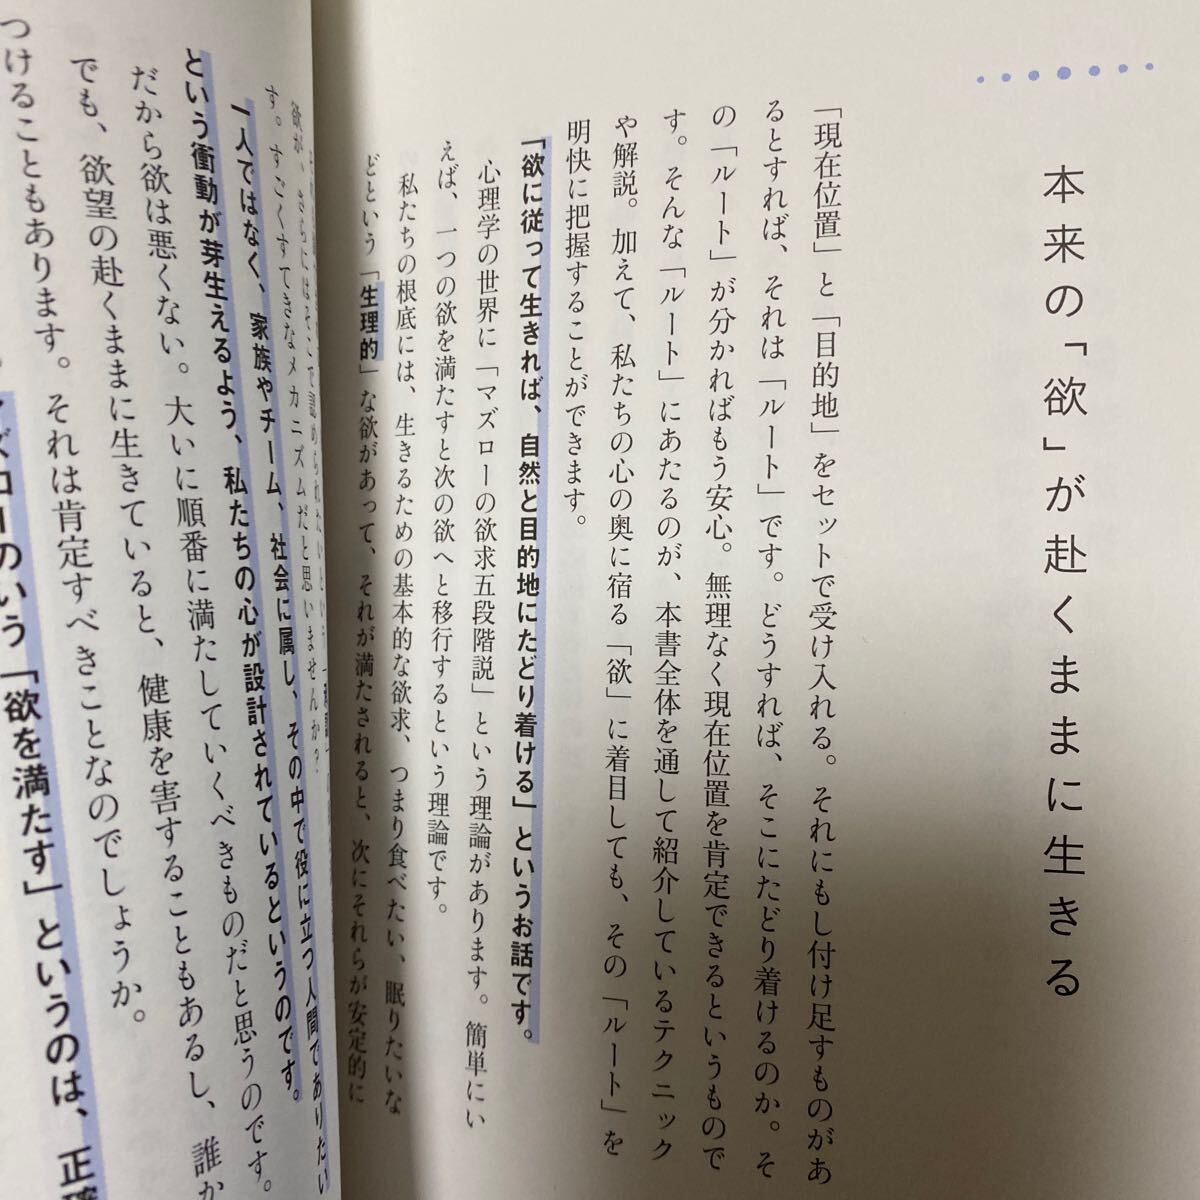 本来の「欲」が赴くままに生きる
「現在位置」と「目的地」をセットで受け入れる。それにもし付け足すものがあ
るとすれば、それは「ルート」です。どうすれば、そこにたどり着けるのか。そ
の「ルート」が分かればもう安心。無理なく現在位置を肯定できるというもので
す。そんな「ルート」にあたるのが、本書全体を通して紹介しているテクニック
や解説。加えて、私たちの心の奥に宿る「欲」に着目しても、その「ルート」を
明快に把握することができます。
「欲に従って生きれば、自然と目的地にたどり着ける」というお話です。
心理学の世界に「マズローの欲求五段階説」という理論があります。簡単にい
えば、一つの欲を満たすと次の欲へと移行するという理論です。
私たちの根底には、生きるための基本的な欲求、つまり食べたい、眠りたいな
どという「生理的」な欲があって、それが満たされると、次にそれらが安定的に
欲が、さらにはそこで認められたいという「承認」
す。すごくすてきなメカニズムだと思いませんか?
一人ではなく、家族やチーム、社会に属し、その中で役に立つ人間でありたい
という衝動が芽生えるよう、私たちの心が設計されているというのです。
だから欲は悪くない。大いに順番に満たしていくべきものだと思うのです。
でも、欲望の赴くままに生きていると、健康を害することもあるし、誰か
つけることもあります。それは肯定すべきことなのでしょうか。
ズローのいう「欲を満たす」というのは、正確